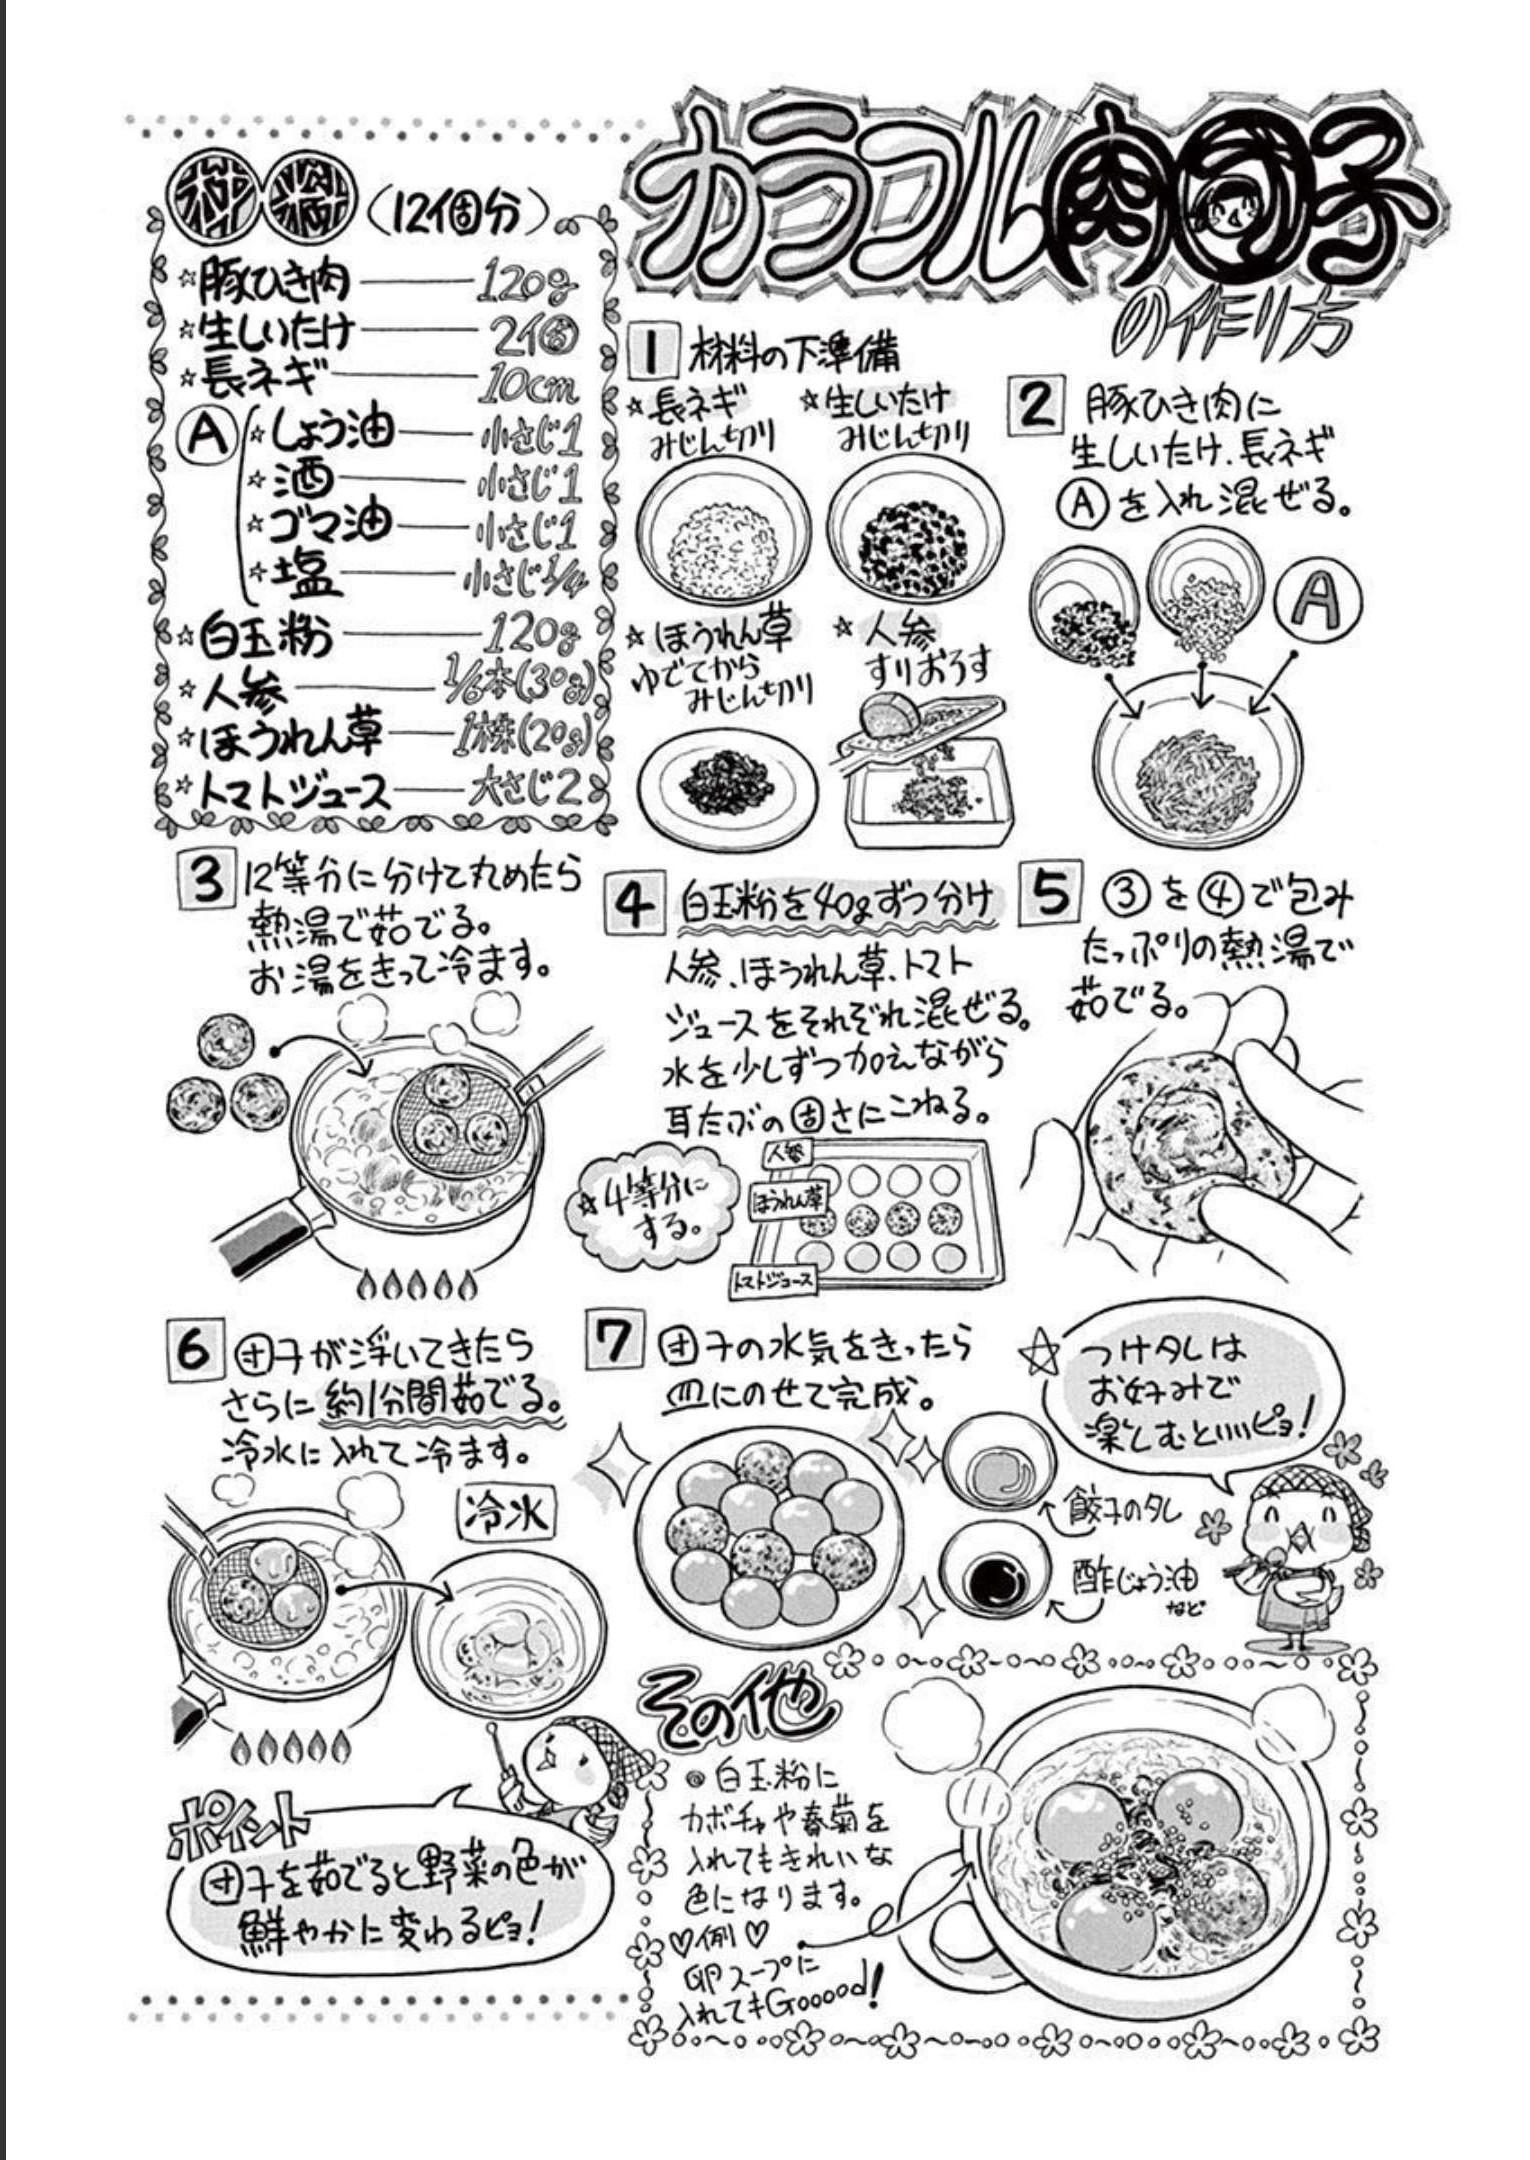 カラフル肉団子
の作り方
材料（12個分）
☆豚ひき肉 120g
☆生しいたけ 2個
☆長ネギ 10cm
Ⓐ
☆しょう油 小さじ1
☆酒 小さじ1
☆ゴマ油 小さじ1
☆塩 小さじ1/4
☆白玉粉 120g
☆人参 1/6本(30g)
☆ほうれん草 1株(20g)
☆トマトジュース 大さじ2
1 材料の下準備
☆長ネギ
みじん切り
☆生しいたけ
みじん切り
☆ほうれん草
ゆでてから
みじん切り
☆人参
すりおろす
2 豚ひき肉に
生しいたけ、長ネギ
Ⓐを入れ混ぜる。
A
3 12等分に分けて丸めたら
熱湯で茹でる。
お湯をきって冷ます。
4 白玉粉を40gずつ分け
人参、ほうれん草、トマト
ジュースをそれぞれ混ぜる。
水を少しずつ加えながら
耳たぶの固さにこねる。
☆4等分に
する。
人参
ほうれん草
トマトジュース
5 ③を④で包み
たっぷりの熱湯で
茹でる。
6 団子が浮いてきたら
さらに約1分間茹でる。
冷水に入れて冷ます。
冷水
7 団子の水気をきったら
皿にのせて完成。
☆つけタレは
お好みで
楽しむといいピョ！
餃子のタレ
酢じょう油
など
ポイント
団子を茹でると野菜の色が
鮮やかに変わるピョ！
その他
◎白玉粉に
カボチャや春菊を
入れてもきれいな
色になります。
♡例♡
卵スープに
入れてもGooood！